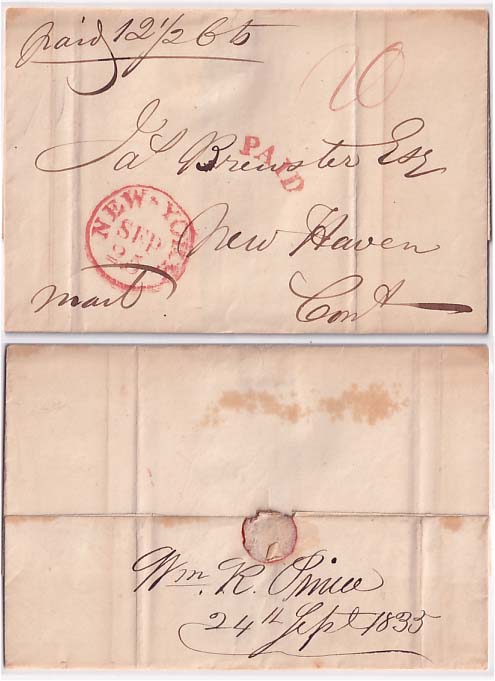 paid 12 1/2 Cts
PAID
Jas Brewster Esq
NEW-YORK
SEP
25
New Haven
mail
Cont
Wm. R. Prince
24th Sept 1835